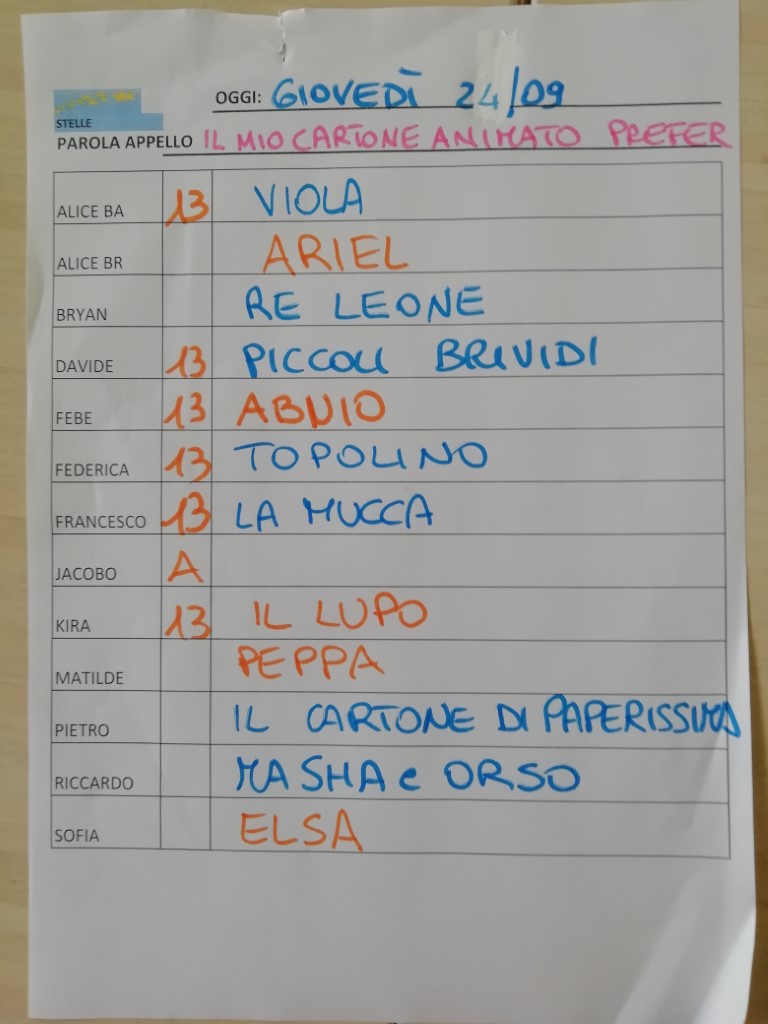 OGGI: GIOVEDÌ 24/09
STELLE
PAROLA APPELLO IL MIO CARTONE ANIMATO PREFER
ALICE BA 13 VIOLA
ALICE BR ARIEL
BRYAN RE LEONE
DAVIDE 13 PICCOLI BRIVIDI
FEBE 13 ABNIO
FEDERICA 13 TOPOLINO
FRANCESCO 13 LA MUCCA
JACOBO A
KIRA 13 IL LUPO
MATILDE PEPPA
PIETRO IL CARTONE DI PAPERISSIMA
RICCARDO MASHA e ORSO
SOFIA ELSA